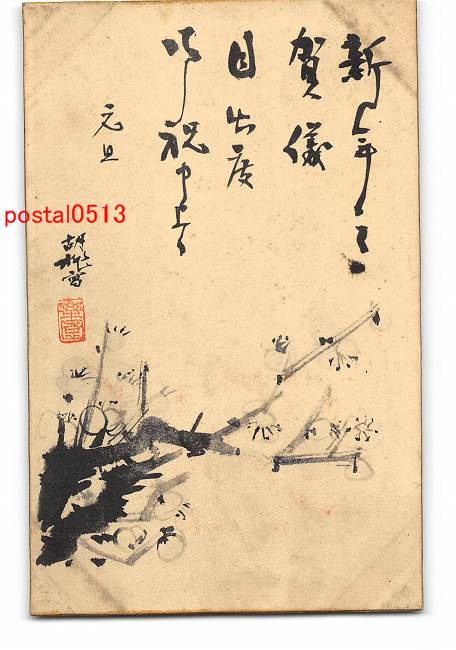 新年之
賀儀
目出度
御祝申上候
元旦
postal0513